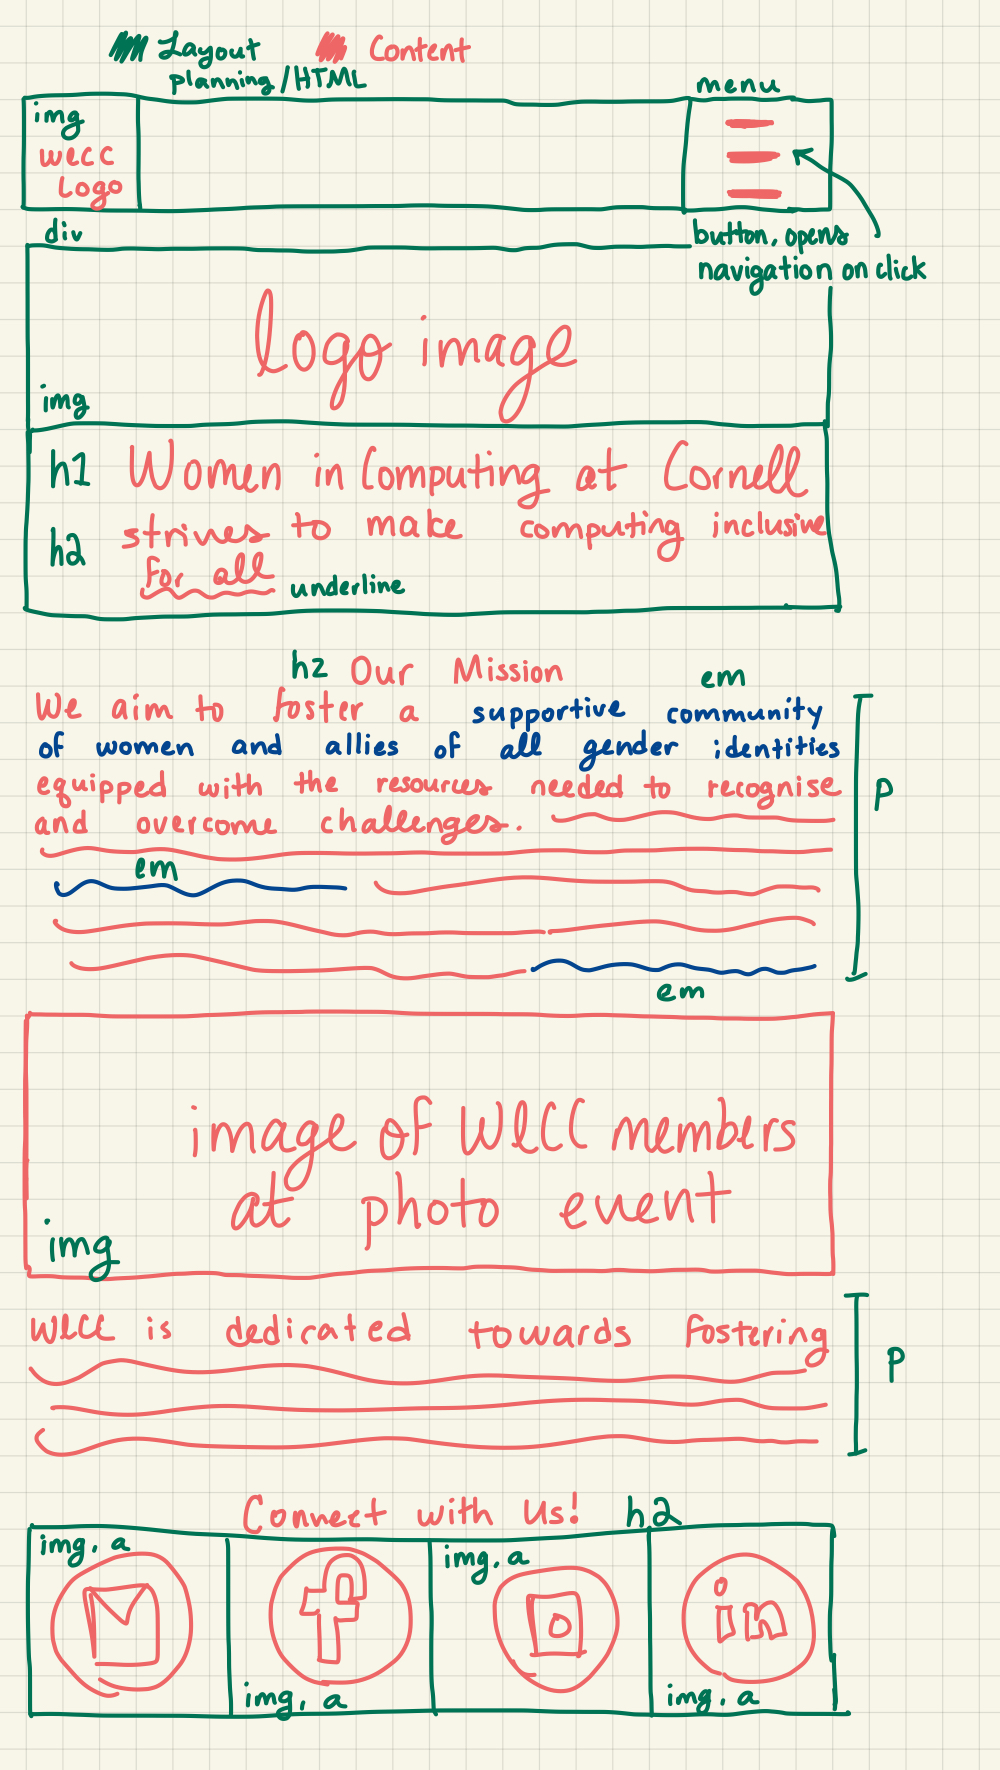 Layout Content
planning/HTML
menu
img
WICC
Logo
div
button, opens
navigation on click
logo image
img
h1 Women in Computing at Cornell
h2 strives to make computing inclusive
for all underline
h2 Our Mission
em
We aim to foster a supportive community
of women and allies of all gender identities
equipped with the resources needed to recognise
and overcome challenges.
p
em
em
image of WICC members
at photo event
img
WICC is dedicated towards fostering
p
Connect with Us! h2
img, a
img, a
f
in
img, a
img, a